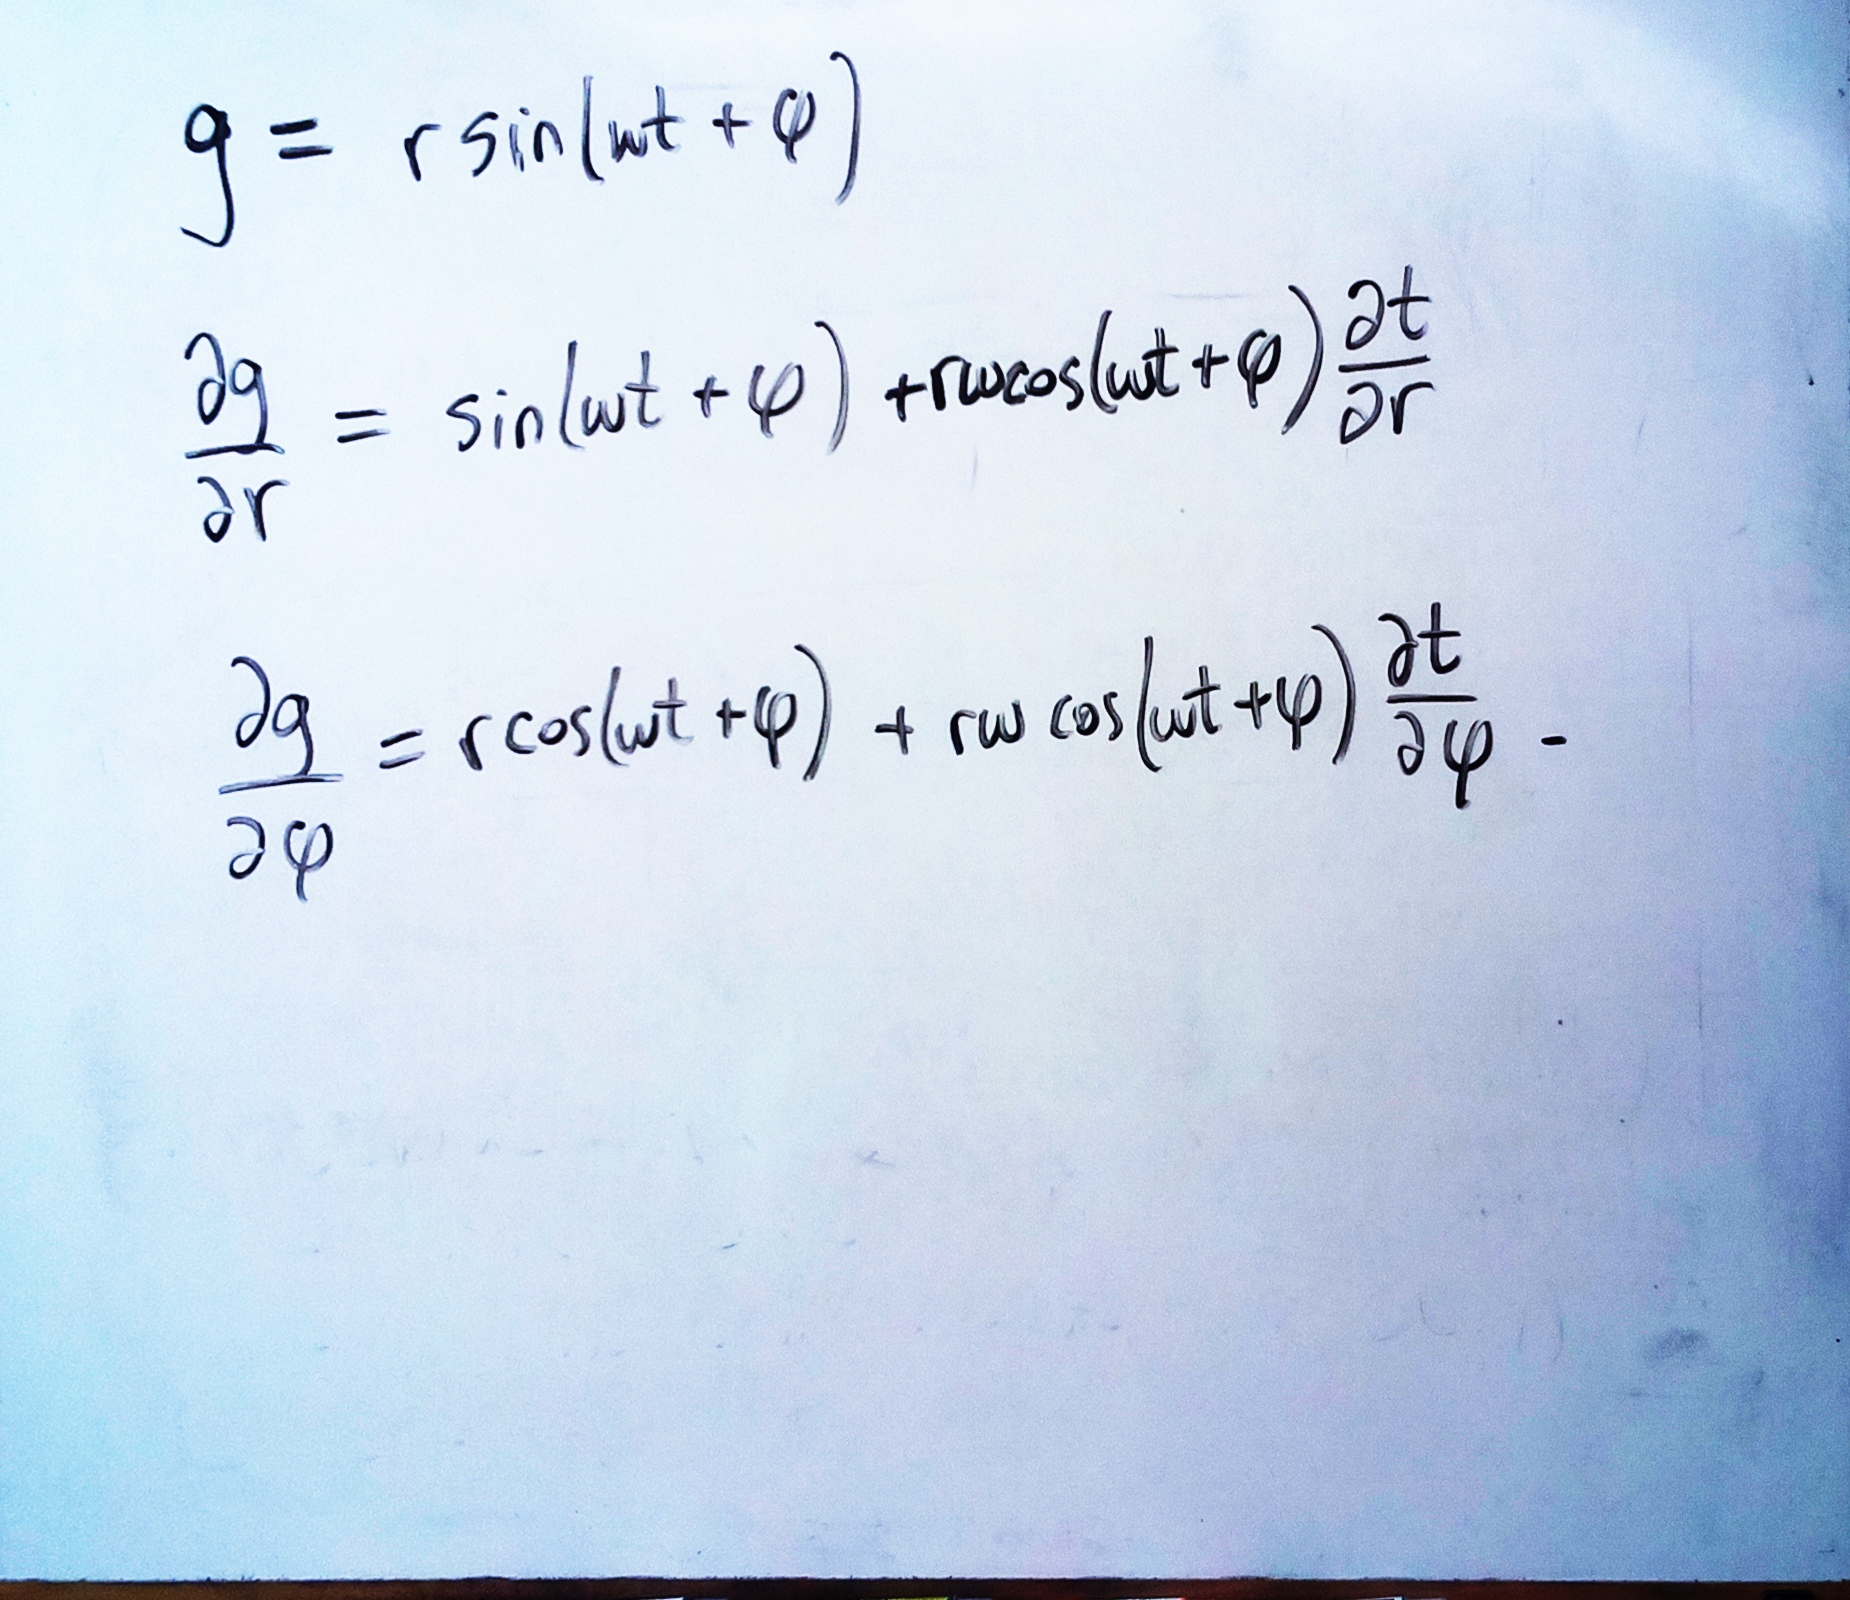 g = r sin(ωt + φ)
∂g/∂r = sin(ωt + φ) + rω cos(ωt + φ) ∂t/∂r
∂g/∂φ = r cos(ωt + φ) + rω cos(ωt + φ) ∂t/∂φ -